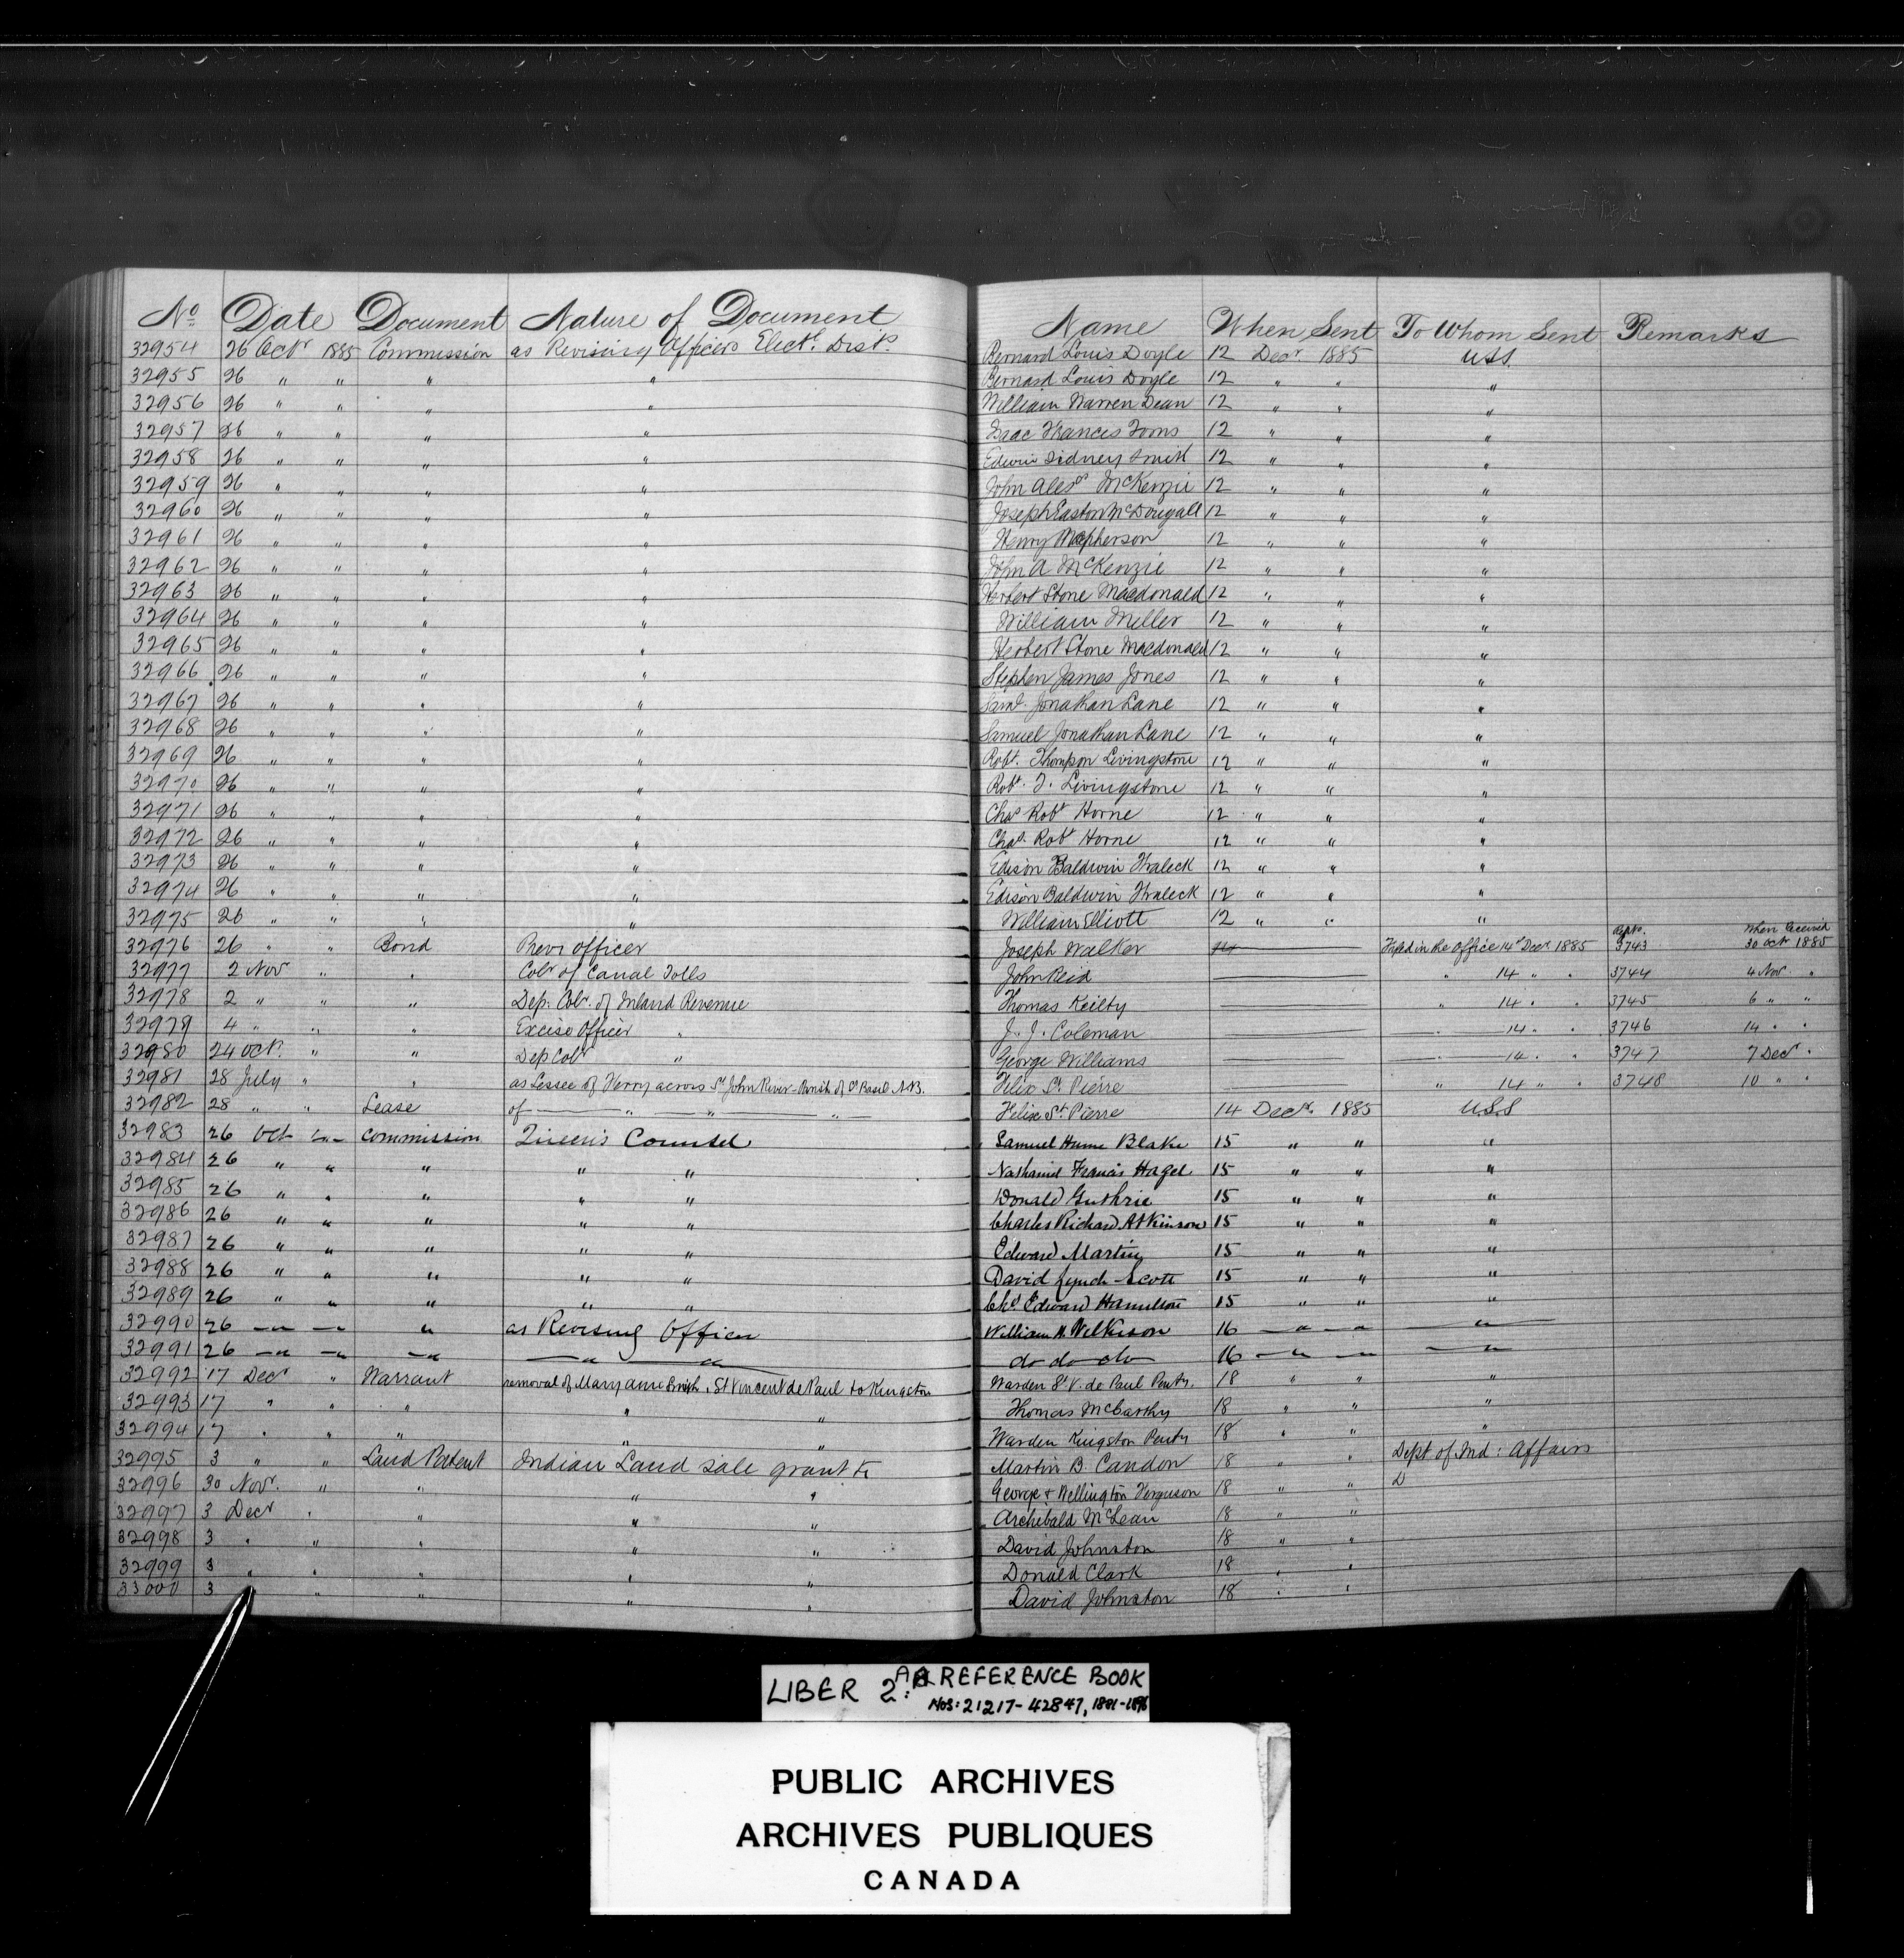 No Date Document Nature of Document Name When Sent To Whom Sent Remarks
32954 26 Octr 1885 Commission as Revising Officers Electl. Dists. Bernard Louis Doyle 12 Decr 1885 U.S.S.
32955 26 " " " " Bernard Louis Doyle 12 " " "
32956 26 " " " " William Warren Dean 12 " " "
32957 26 " " " " Isaac Francis Toms 12 " " "
32958 26 " " " " Edwin Sidney Smith 12 " " "
32959 26 " " " " John Alexr McKenzie 12 " " "
32960 26 " " " " Joseph Easton McDougall 12 " " "
32961 26 " " " " Henry Macpherson 12 " " "
32962 26 " " " " John A McKenzie 12 " " "
32963 26 " " " " Herbert Stone Macdonald 12 " " "
32964 26 " " " " William Miller 12 " " "
32965 26 " " " " Herbert Stone Macdonald 12 " " "
32966 26 " " " " Stephen James Jones 12 " " "
32967 26 " " " " Saml. Jonathan Lane 12 " " "
32968 26 " " " " Samuel Jonathan Lane 12 " " "
32969 26 " " " " Robt. Thompson Livingstone 12 " " "
32970 26 " " " " Robt. T. Livingstone 12 " " "
32971 26 " " " " Chas Robt Horne 12 " " "
32972 26 " " " " Chas. Robt Horne 12 " " "
32973 26 " " " " Edison Baldwin Fraleck 12 " " "
32974 26 " " " " Edison Baldwin Fraleck 12 " " "
32975 26 " " " " William Elliott 12 " " "
Repts. When Received
32976 26 " " Bond Prevr Officer Joseph Walker Filed in the Office 14th Decr 1885 3743 30 Octr 1885
32977 2 Nov " " Colr of Canal Tolls John Reid " 14 " " 3744 4 Nov. "
32978 2 " " " Dep: Colr. of Inland Revenue Thomas Keilty " 14 " " 3745 6 " "
32979 4 " " " Excise Officer " J. J. Coleman " 14 " " 3746 14 " "
32980 24 Oct. " " Dep Colr " George Williams " 14 " " 3747 7 Decr "
32981 28 July " " as Lessee of Ferry across St John River - Parish of St Basil N.B. Felix St. Pierre " 14 " " 3748 10 " "
32982 28 " " Lease of " " " Felix St. Pierre 14 Decr. 1885 U.S.S
32983 26 Oct " Commission Queen's Counsel Samuel Hume Blake 15 " " "
32984 26 " " " " " Nathaniel Francis Hagel. 15 " " "
32985 26 " " " " " Donald Guthrie 15 " " "
32986 26 " " " " " Charles Richard Atkinson 15 " " "
32987 26 " " " " " Edward Martin 15 " " "
32988 26 " " " " " David Lynch Scott 15 " " "
32989 26 " " " " " Chs. Edward Hamilton 15 " " "
32990 26 " " " as Revising Officer William H. Wilkison 16 " " "
32991 26 " " " " " do do do 16 " " "
32992 17 Decr " Warrant removal of Mary Ann Smith, St Vincent de Paul to Kingston Warden St V. de Paul Penty. 18 " " "
32993 17 " " " " " Thomas McCarthy 18 " " "
32994 17 " " " " " Warden Kingston Penty 18 " " "
32995 3 " " Land Patent Indian Land Sale grant to Martin B. Candon 18 " " Dept of Ind: Affairs
32996 30 Nov. " " " " George & Wellington Ferguson 18 " " D
32997 3 Decr " " " " Archibald McLean 18 " "
32998 3 " " " " " David Johnston 18 " "
32999 3 " " " " " Donald Clark 18 " "
33000 3 " " " " " David Johnston 18 " "
LIBER 2: REFERENCE BOOK
NOS: 21217-42847, 1881-1896
PUBLIC ARCHIVES
ARCHIVES PUBLIQUES
CANADA